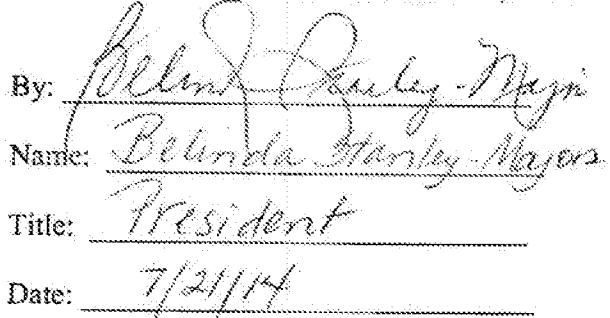 By: Belinda Stanley-Majors
Name: Belinda Stanley-Majors
Title: President
Date: 7/21/14